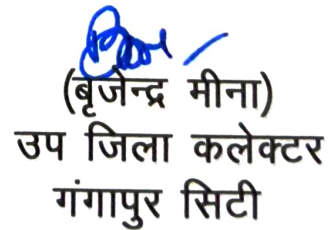 (बृजेन्द्र मीना)
उप जिला कलेक्टर
गंगापुर सिटी